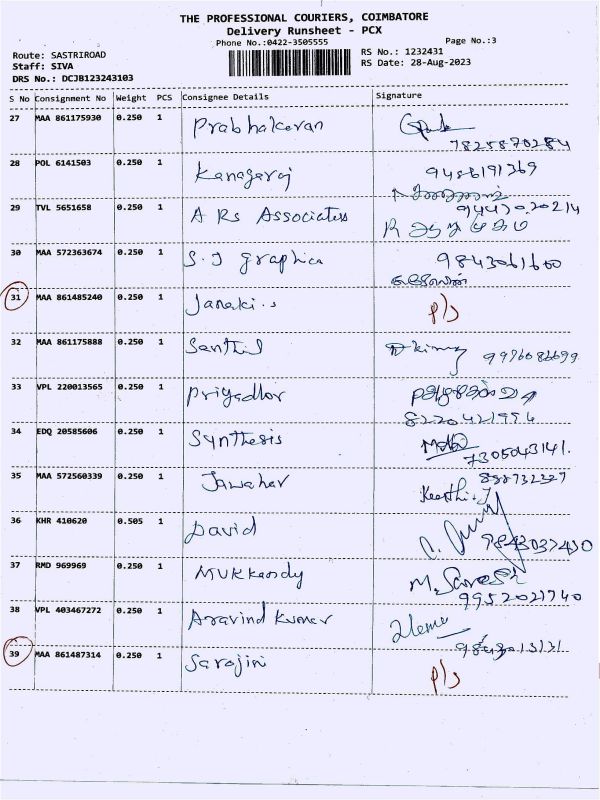 THE PROFESSIONAL COURIERS, COIMBATORE
Delivery Runsheet - PCX
Phone No.:0422-3505555
Page No.:3
Route: SASTRIROAD
RS No.: 1232431
Staff: SIVA
RS Date: 28-Aug-2023
DRS No.: DCJB123243103
S No Consignment No Weight PCS Consignee Details Signature
27 MAA 861175930 0.250 1 Prabhakaran
7825870284
28 POL 6141503 0.250 1 Kanagaraj
29 TVL 5651658 0.250 1 A Rs Associates
30 MAA 572363674 0.250 1 S.J graphics 9843061600
31 MAA 861485240 0.250 1 Janaki.s P/s
32 MAA 861175888 0.250 1 Santhil
33 VPL 220013565 0.250 1 Priyadhor
8220421996
34 EDQ 20585606 0.250 1 Synthesis
7305043141.
35 MAA 572560339 0.250 1 Jawahar
Keerthi.J
36 KHR 410620 0.505 1 David
9843037430
37 RMD 969969 0.250 1 Mukkandy
9952021740
38 VPL 403467272 0.250 1 Aravind Kumar
39 MAA 861487314 0.250 1 Sarojini P/s